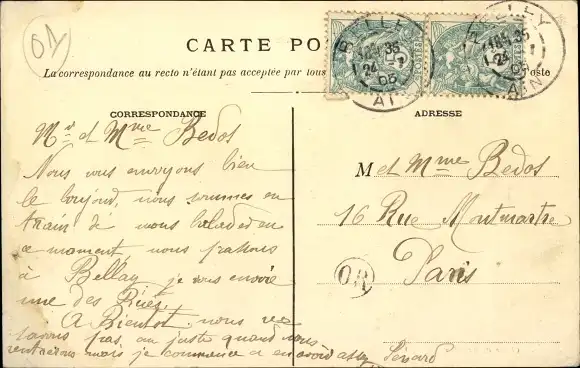 01
CARTE PO
La correspondance au recto n'étant pas acceptée par tous
Poste
BELLEY
AIN
CORRESPONDANCE
ADRESSE
Mr et Mme Bedos
Nous vous envoyons bien
le bonjour, nous sommes en
train de nous balader en
ce moment, nous passons
à Bellay je vous envoie
une des
A Bientot, nous ne
savons pas au juste quand nous
rentrerons mais je commence a en avoir assez
M et Mme Bedos
16 Rue Montmartre
Paris
OR